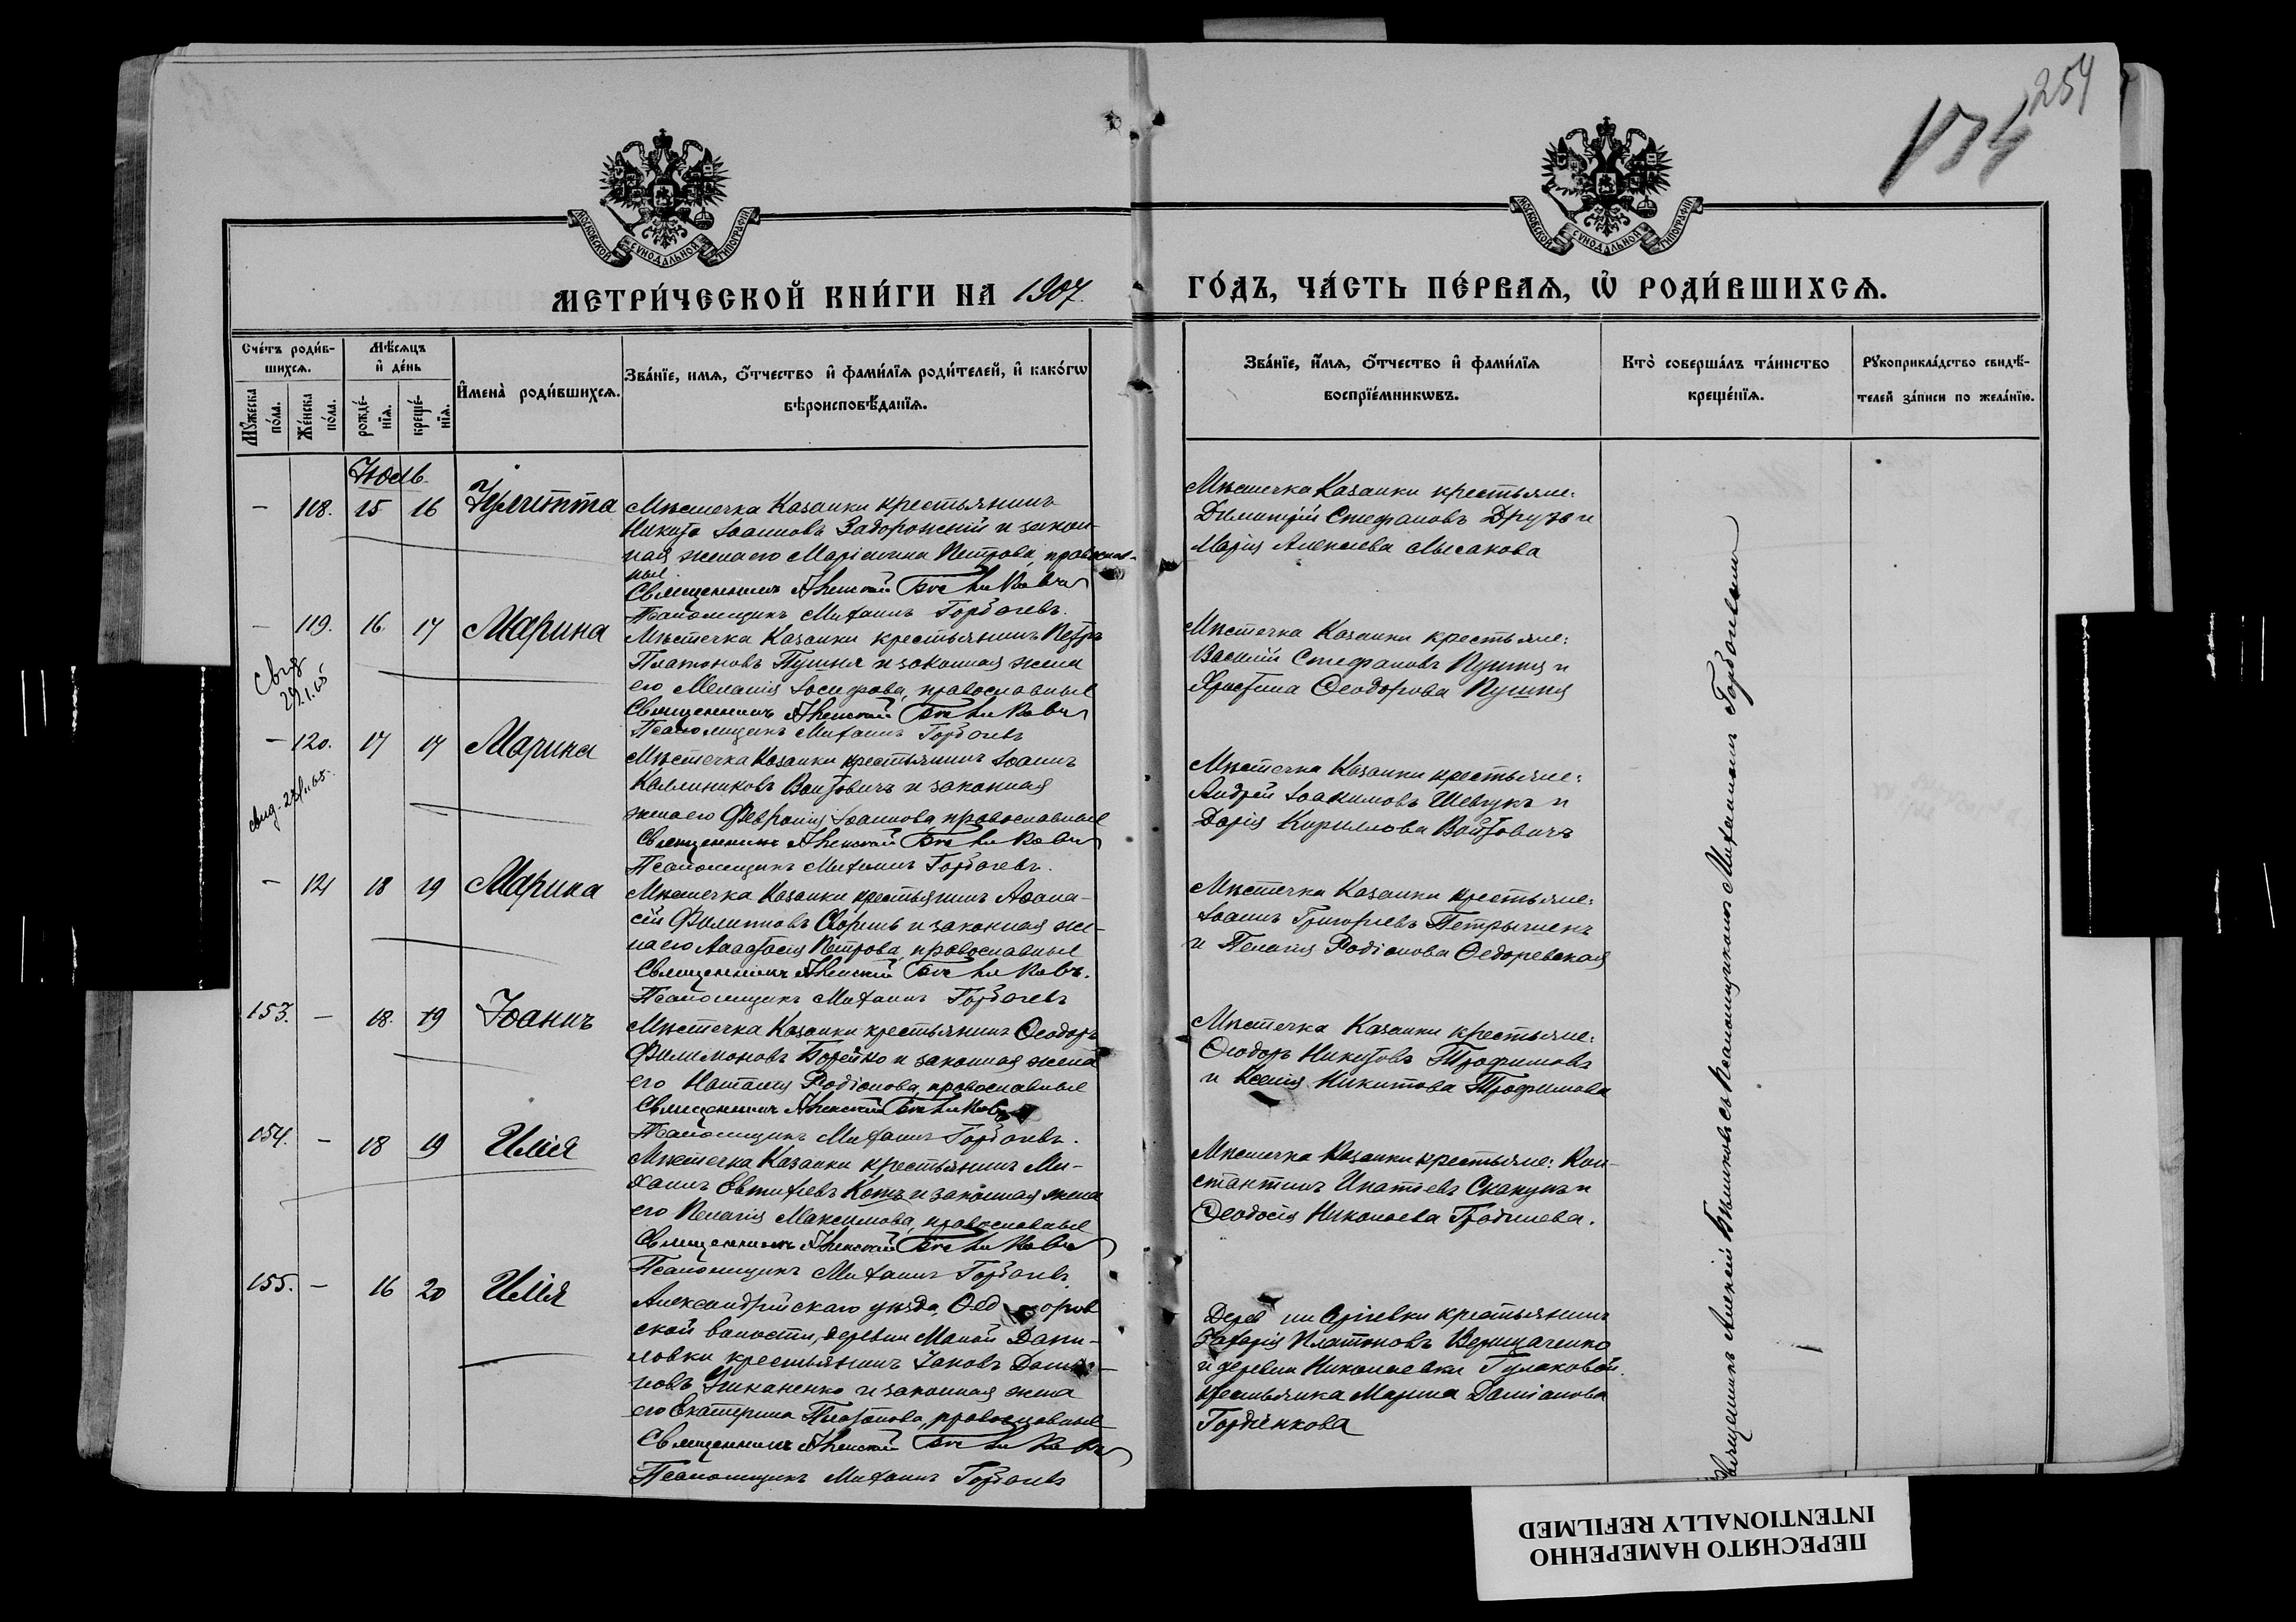 254
174
МОСКОВСКОЙ СѴНОДАЛЬНОЙ ТИПОГРАФІИ
МОСКОВСКОЙ СѴНОДАЛЬНОЙ ТИПОГРАФІИ
МЕТРИ́ЧЕСКОЙ КНИ́ГИ НА 1907 ГО́ДЪ, ЧА́СТЬ ПЕ́РВАѦ, Ѡ҆ РОДИ́ВШИХСѦ.
Сче́тъ роди́в-
шихсѧ.
Мꙋ́жеска по́ла.
Же́нска по́ла.
Мѣ́сѧцъ
и҆ де́нь
рожде́-
нїѧ.
креще́-
нїѧ.
И҆мена̀ роди́вшихсѧ.
Зва́нїе, имѧ, ѻ҆́тчество и҆ фами́лїѧ роди́телей, и҆ како́гѡ
вѣроисповѣ́данїѧ.
Зва́нїе, и҆́мѧ, ѻ҆́тчество и҆ фами́лїѧ
воспрїе́мникѡвъ.
Кто̀ соверша́лъ та́инство
креще́нїѧ.
Рꙋкоприкла́дство свидѣ́-
телей за́писи по жела́нїю.
Июль
– 118. 15 16 Іулитта
Мѣстечка Казанки крестьянинъ
Никита Іоанновъ Задорожній и закон-
ная жена его Маріанна Петрова, православ-
ные
Священникъ Алексій Бѣликовъ
Псаломщикъ Михаилъ Горбачевъ.
Мѣстечка Казанки крестьяне:
Димитрій Стефановъ Друзь и
Марія Алексѣева
– 119. 16 17 Марина
Мѣстечка Казанки крестьянинъ Петръ
Платоновъ Пушня и законная жена
его Меланія Іосифова, православные
Священникъ Алексій Бѣликовъ
Псаломщикъ Михаилъ Горбачевъ
Мѣстечка Казанки крестьяне:
Василій Стефановъ Пушня и
Христина Ѳеодорова Пушня
свид
29.1.65
– 120. 17 17 Марина
Мѣстечка Казанки крестьянинъ Іоаннъ
Каллиниковъ Войтовичъ и законная
жена его Февронія Іоаннова, православные
Священникъ Алексій Бѣликовъ
Псаломщикъ Михаилъ Горбачевъ.
Мѣстечка Казанки крестьяне:
Андрей Іоакимовъ Шевчукъ и
Дарія Кириллова Войтовичъ
свид-
– 121 18 19 Марина
Мѣстечка Казанки крестьянинъ Аѳана-
сій Филипповъ и законная же-
на его Анастасія Петрова, православные
Священникъ Алексій Бѣликовъ.
Псаломщикъ Михаилъ Горбачевъ
Мѣстечка Казанки крестьяне:
Іоаннъ Григорьевъ
и Пелагія Родіонова Ѳедоревская
153. – 18. 19 Іоаннъ
Мѣстечка Казанки крестьянинъ Ѳеодоръ
Филимоновъ Борейко и законная жена
его Наталія Родіонова, православные
Священникъ Алексій Бѣликовъ
Псаломщикъ Михаилъ Горбачевъ.
Мѣстечка Казанки крестьяне:
Ѳеодоръ Никитовъ Трофимовъ
и Ксенія Никитова Трофимова
154. – 18 19 Илія
Мѣстечка Казанки крестьянинъ Ми-
хаилъ Евтихіевъ Котъ и законная жена
его Пелагія Максимова, православные
Священникъ Алексій Бѣликовъ
Псаломщикъ Михаилъ Горбачевъ.
Мѣстечка Казанки крестьяне: Кон-
стантинъ Ипатіевъ Скакунъ и
Ѳеодосія Николаева
155. – 16 20 Илія
Александрійскаго уѣзда, Ѳедоров
ской волости, деревни Малой Дани-
ловки крестьянинъ Іаковъ
новъ и законная жена
его Екатерина Платонова, православные
Священникъ Алексій Бѣликовъ
Псаломщикъ Михаилъ Горбачевъ
Деревни Сергіевки крестьянинъ
Захарія Платоновъ Верещаченко
и деревни Николаевки Гулаковой
крестьянка Марина Даміанова
Гордіенкова
Священникъ Алексій Бѣликовъ съ псаломщикомъ Михаиломъ Горбачевымъ
ПЕРЕСНЯТО НАМЕРЕННО
INTENTIONALLY REFILMED